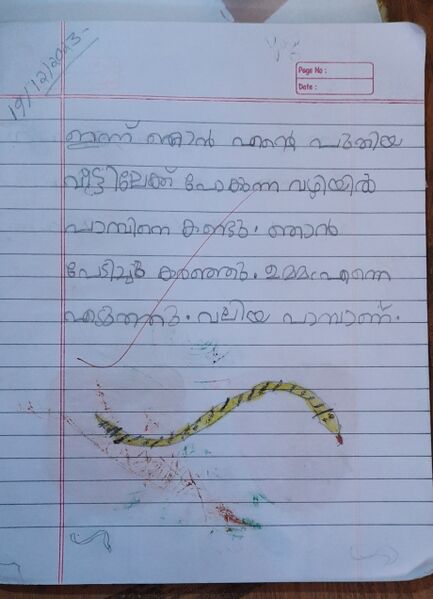 19/12/2023
Page No :
Date :
ഇന്ന് ഞാൻ എന്റെ പുതിയ
വീട്ടിലേക്ക് പോകുന്ന വഴിയിൽ
പാമ്പിനെ കണ്ടു. ഞാൻ
പേടിച്ചു കരഞ്ഞു. ഉമ്മ എന്നെ
എടുത്തു. വലിയ പാമ്പാണ്.